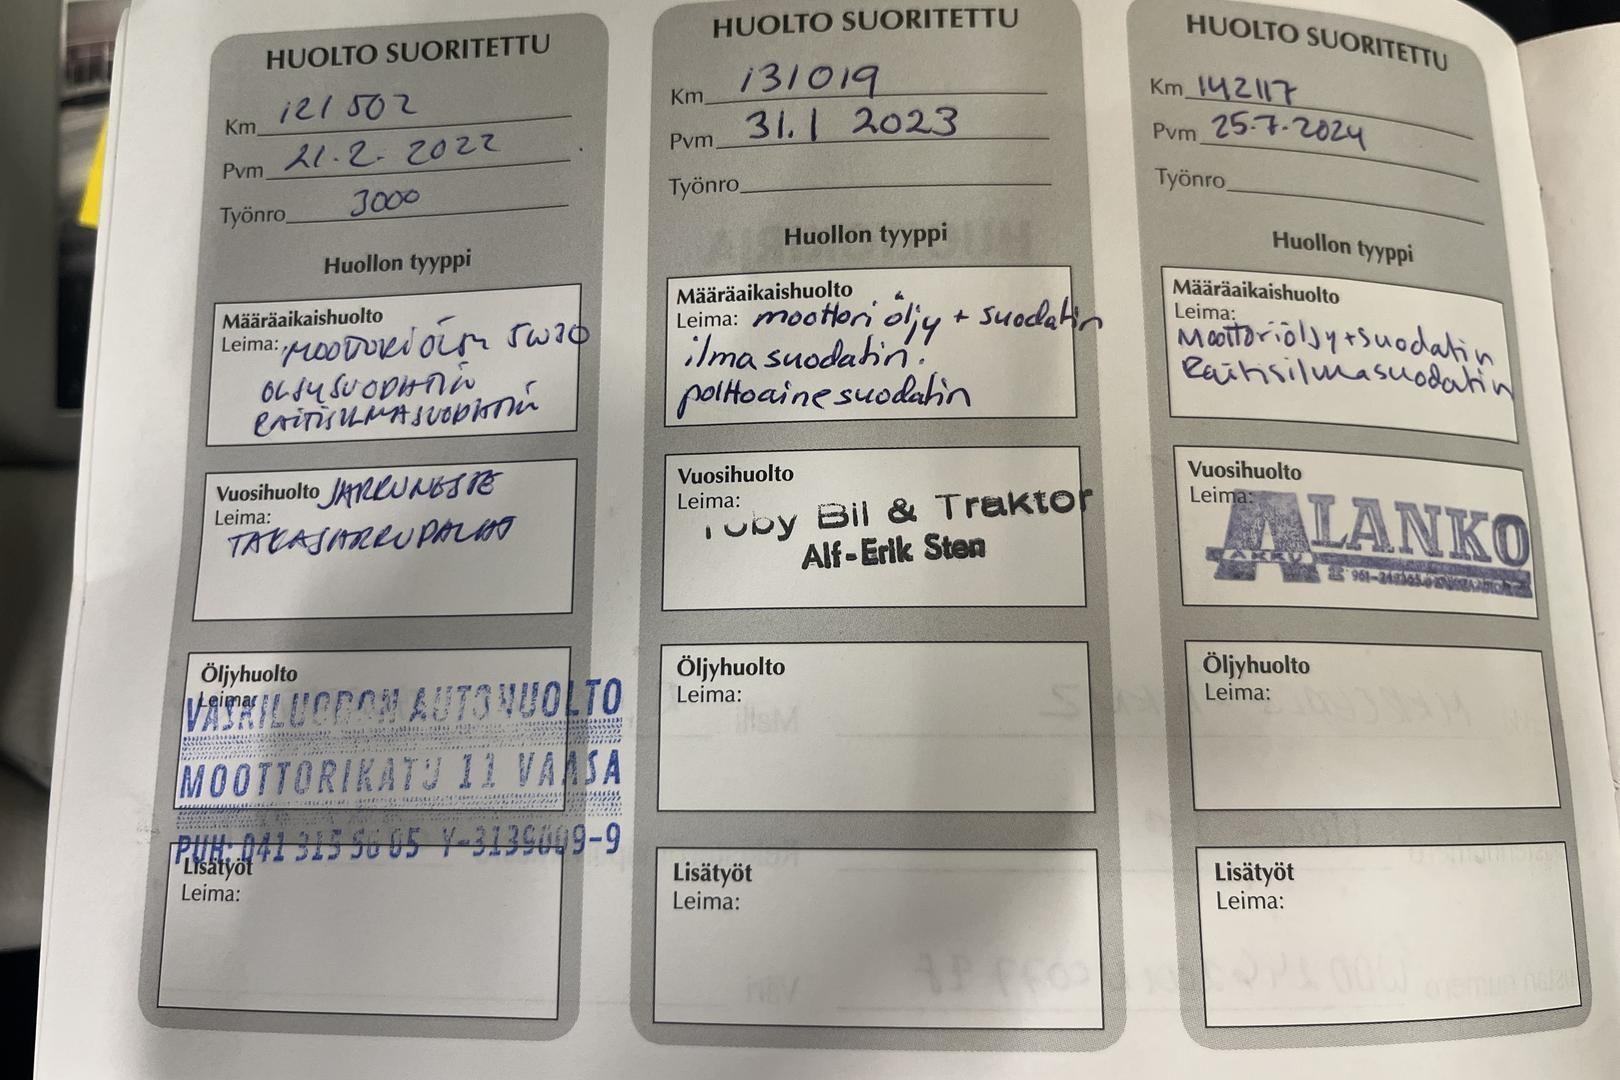 HUOLTO SUORITETTU
Km 121 502
Pvm 21.2. 2022
Työnro 3000
Huollon tyyppi
Määräaikaishuolto
Leima: MOOTTORIÖLJY 5W30
ÖLJYSUODATIN
RAITISILMASUODATIN
Vuosihuolto JARRUNESTE
Leima:
TAKAJARRUPALAT
Öljyhuolto
Leima:
VASKILUODON AUTOHUOLTO
MOOTTORIKATU 11 VAASA
PUH: 041 315 56 05 Y-3139009-9
Lisätyöt
Leima:
HUOLTO SUORITETTU
Km 131019
Pvm 31.1 2023
Työnro
Huollon tyyppi
Määräaikaishuolto
Leima: moottori öljy + suodatin
ilma suodatin.
polttoainesuodatin
Vuosihuolto
Leima:
Bil & Traktor
Alf-Erik Sten
Öljyhuolto
Leima:
Lisätyöt
Leima:
HUOLTO SUORITETTU
Km 142117
Pvm 25.7.2024
Työnro
Huollon tyyppi
Määräaikaishuolto
Leima:
Moottoriöljy+suodatin
Raitisilmasuodatin
Vuosihuolto
Leima:
ALANKO
AKKU
Öljyhuolto
Leima:
Lisätyöt
Leima: